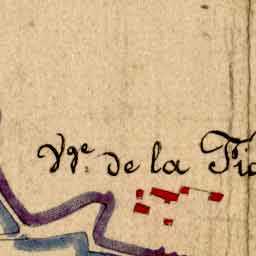 Vge. de la Fia